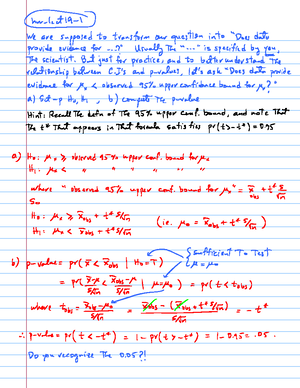 hw-Lect19-1
We are supposed to transform our question into "Does data
provide evidence for ...?" Usually the "..." is specified by you,
the scientist. But just for practice, and to better understand the
relationship between C.I's and p-values, let's ask "Does data provide
evidence for μx < observed 95% upper confidence bound for μx?"
a) Set-up H0, H1, b) compute the p-value
Hint: Recall the defn of the 95% upper conf. bound, and note that
the t* that appears in that formula satisfies pr(t>-t*) = 0.95
a) H0: μx ≥ observed 95% upper conf. bound for μx
H1: μx < " " " " "
where "observed 95% upper conf. bound for μx" = x̄obs + t* s/√n
So
H0: μx ≥ x̄obs + t* s/√n
H1: μx < x̄obs + t* s/√n (i.e. μ0 = x̄obs + t* s/√n)
b) p-value = pr(x̄ < x̄obs | H0 = T) Sufficient To Test μ = μ0
= pr((x̄-μ)/(s/√n) < (x̄obs-μ)/(s/√n) | μ = μ0) = pr(t < tobs)
where tobs = (x̄obs-μ0)/(s/√n) = (x̄obs - (x̄obs + t* s/√n))/(s/√n) = -t*
∴ p-value = pr(t < -t*) = 1 - pr(t > -t*) = 1 - 0.95 = .05
Do you recognize the 0.05?!